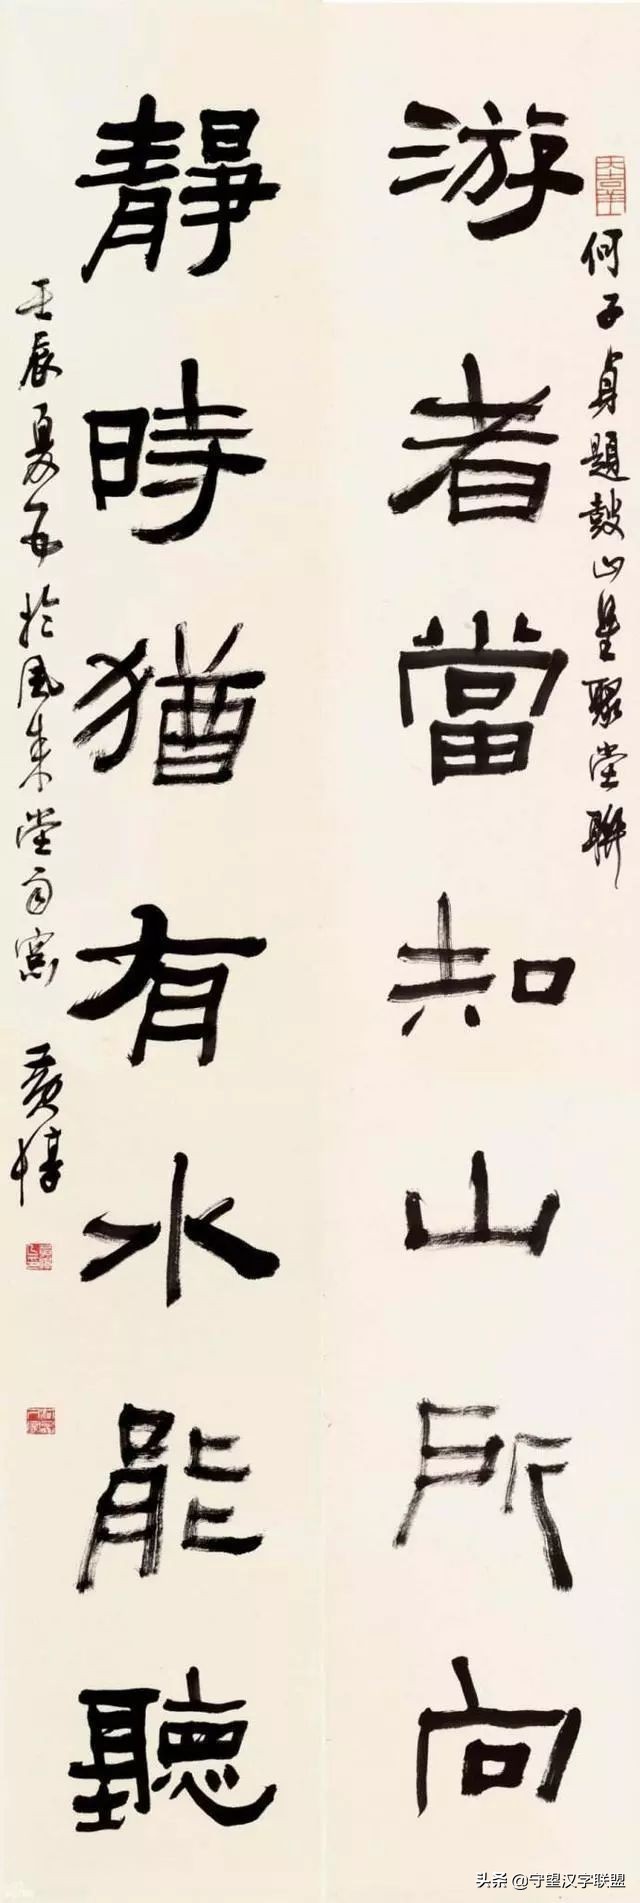 何子貞題鼓山星聚堂聯
游者當知山所向
靜時猶有水能聽
壬辰夏日於風來堂南窓
黄惇
头条@守望汉字联盟